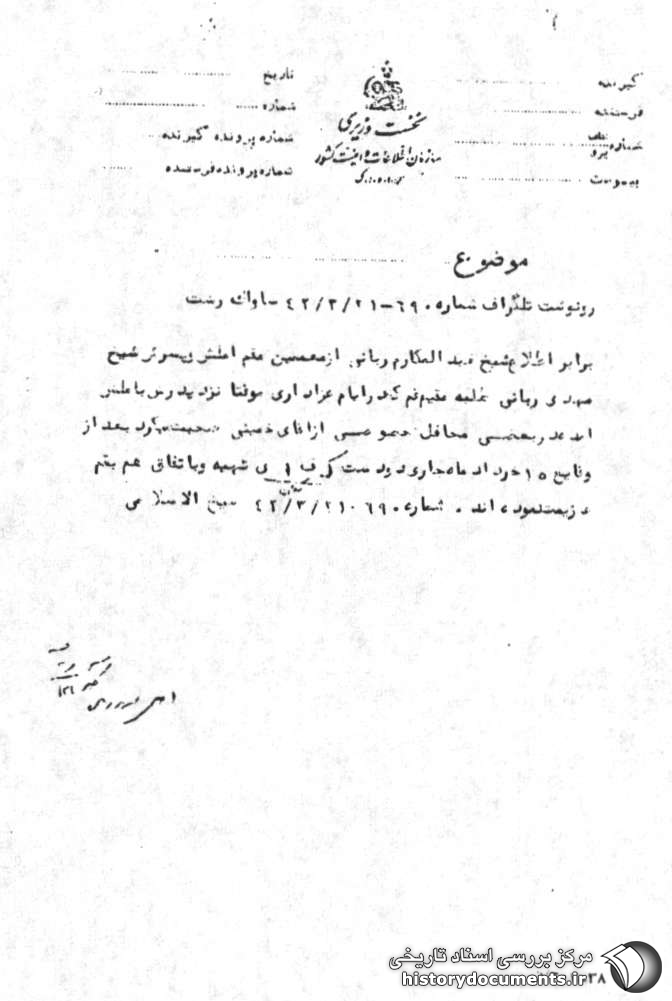 گیرنده
فرستنده
شماره
پیوست
نخست وزیری
سازمان اطلاعات و امنیت کشور
س.ا.و.ا.ک
تاریخ
شماره
شماره پرونده گیرنده
شماره پرونده فرستنده
موضوع
رونوشت تلگراف شماره ۶۹۰-۴۲/۳/۲۱- ساواك رشت
برابر اطلاع شیخ عبد المکارم ربانی از معممین مقیم املش و پسرش شیخ
مهدی ربانی طلبه مقیم قم که در ایام عزاداری موقتا نزد پدرش باملش
آمده در بعضی محافل خصوصی از آقای خمینی صحبت میکرد بعد از
وقایع ۱۵ خرداد ماه جاری و دستگیری شهیه و باتفاق هم بقم
عزیمت نموده اند . شماره ۶۹۰ ۴۲/۳/۲۱ شیخ الاسلامی
مرکز بررسی اسناد تاریخی
historydocuments.ir